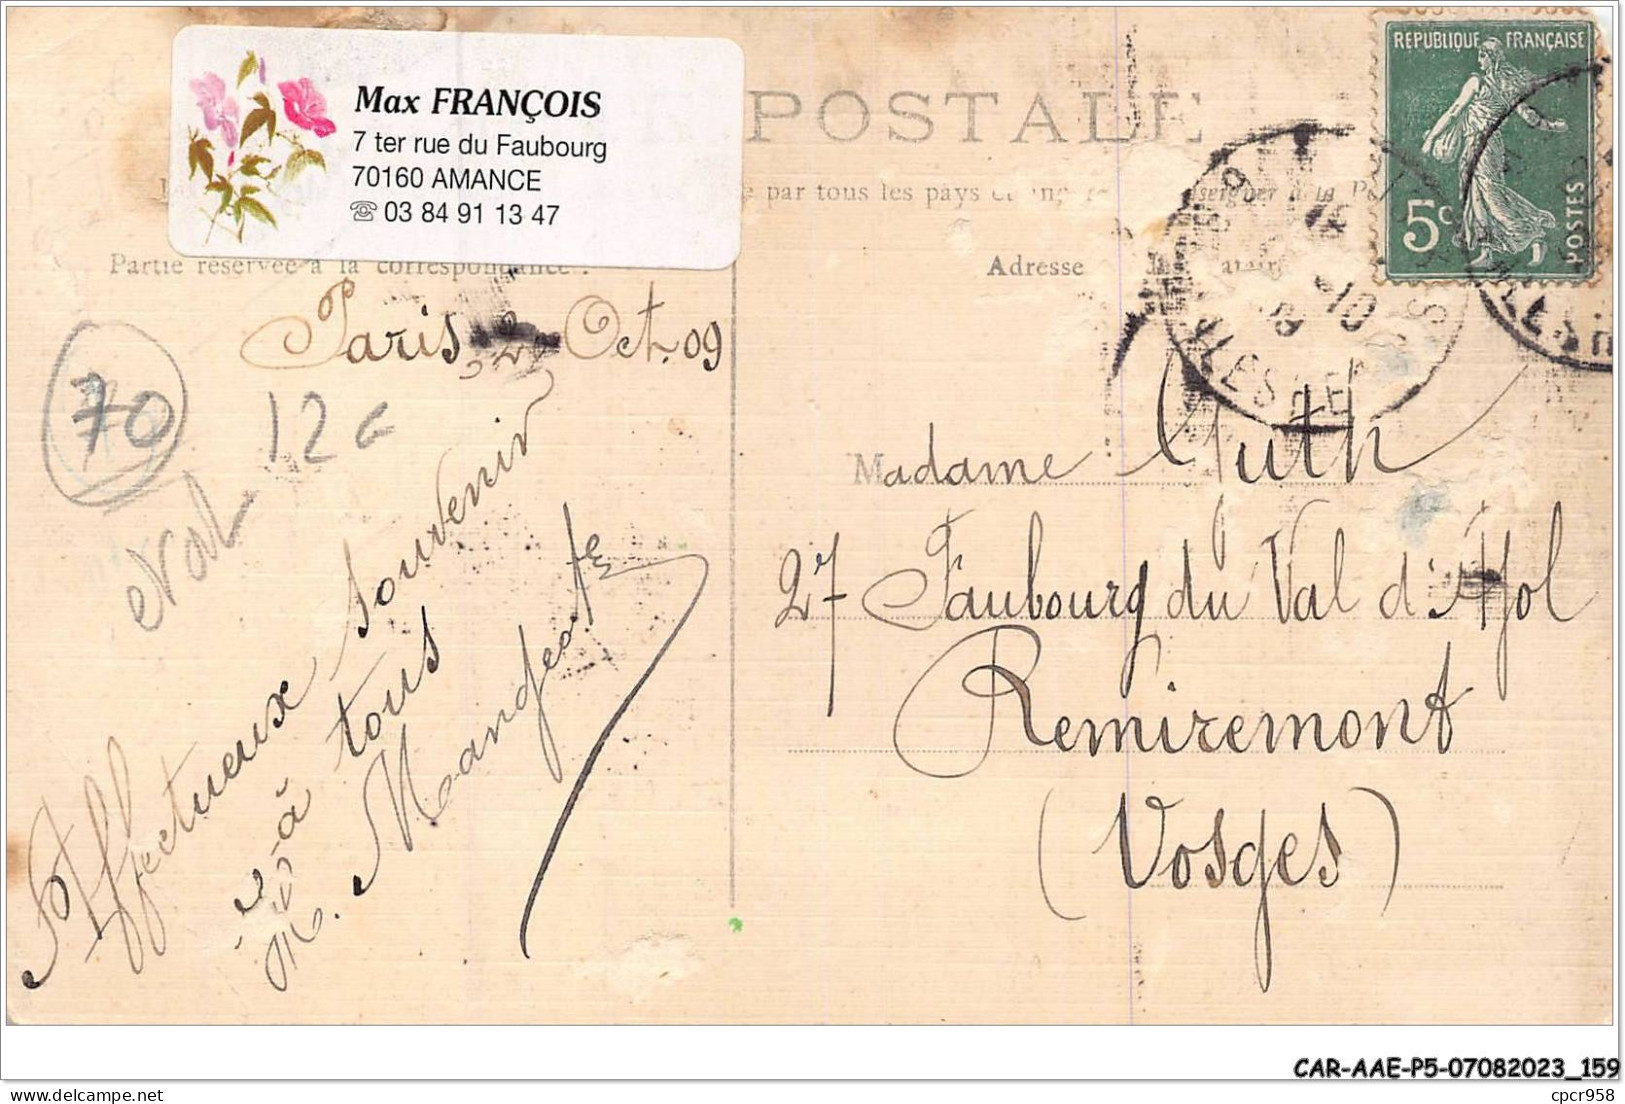 Max FRANÇOIS
7 ter rue du Faubourg
70160 AMANCE
☏ 03 84 91 13 47
POSTALE
par tous les pays
Partie réservée à la correspondance.
Adresse
REPUBLIQUE FRANÇAISE
5c
POSTES
Paris Oct. 09
70
12
Affectueux souvenir
à tous
M. Mangeotte
Madame Guth
27 Faubourg du Val d'Ajol
Remiremont
(Vosges)
CAR-AAE-P5-07082023_159
cpcr958